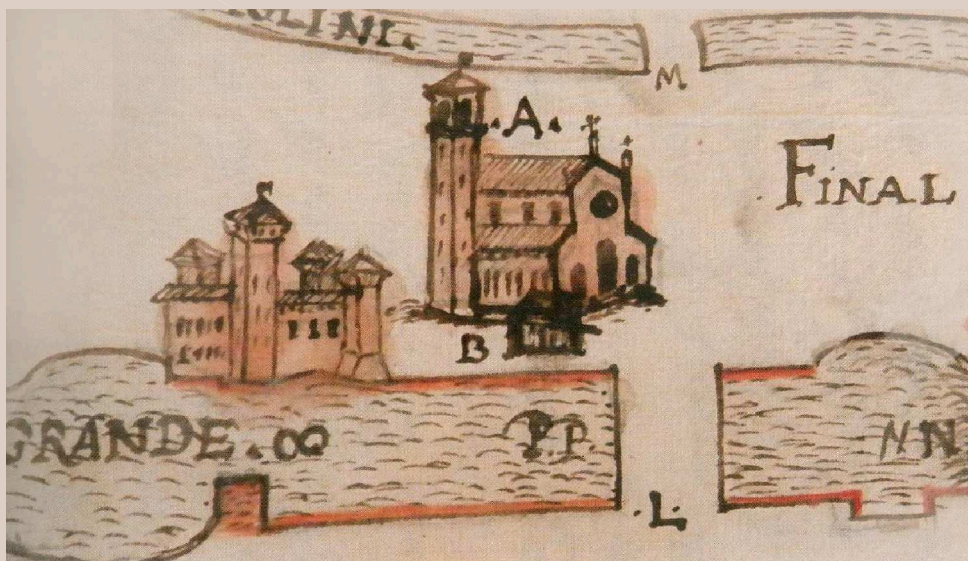 OLINI.
M
.A.
FINAL
B
GRANDE.OO
P.P
NN
.L.